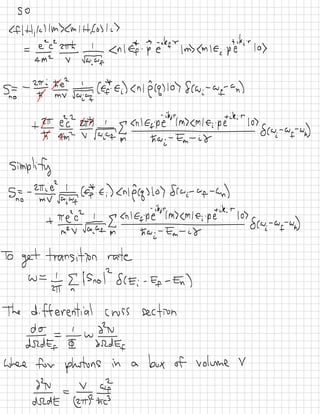 so
<f|H_1(1)|m><m|H_1(0)|i>
= e²c²/4m² 2πħ/V 1/√(ω_i ω_f) <n|ε_f^* · p e^{-ik_f·r}|m><m|ε_i · p e^{+ik_i·r}|0>
S_{n0} = - 2πi/ħ ħe²/mV 1/√(ω_i ω_f) (ε_f^* ε_i) <n|ρ̂(q)|0> δ(ω_i-ω_f-ω_n)
+ 2π/ħ e²c²/4m² 2πħ/V 1/√(ω_i ω_f) Σ_m <n|ε_f p e^{-ik_f·r}|m><m|ε_i p e^{+ik_i·r}|0> / ħω_i - E_m - iγ δ(ω_i-ω_f-ω_n)
Simplify
S_{n0} = - 2πi e²/mV 1/√(ω_i ω_f) (ε_f^* ε_i) <n|ρ(q)|0> δ(ω_i-ω_f-ω_n)
+ πe²c²/m²V 1/√(ω_i ω_f) Σ_m <n|ε_f p e^{-ik_f·r}|m><m|ε_i p e^{+ik_i·r}|0> / ħω_i - E_m - iγ δ(ω_i-ω_f-ω_n)
To get transition rate
w = 1/2π Σ_n |S_{n0}|² δ(E_i - E_f - E_n)
The differential cross section
dσ/dΩdE_f = 1/Φ w ∂²N/∂Ω∂E_f
where for photons in a box of volume V
∂²N/dΩdE = V/(2π)³ ω_f²/ħc³